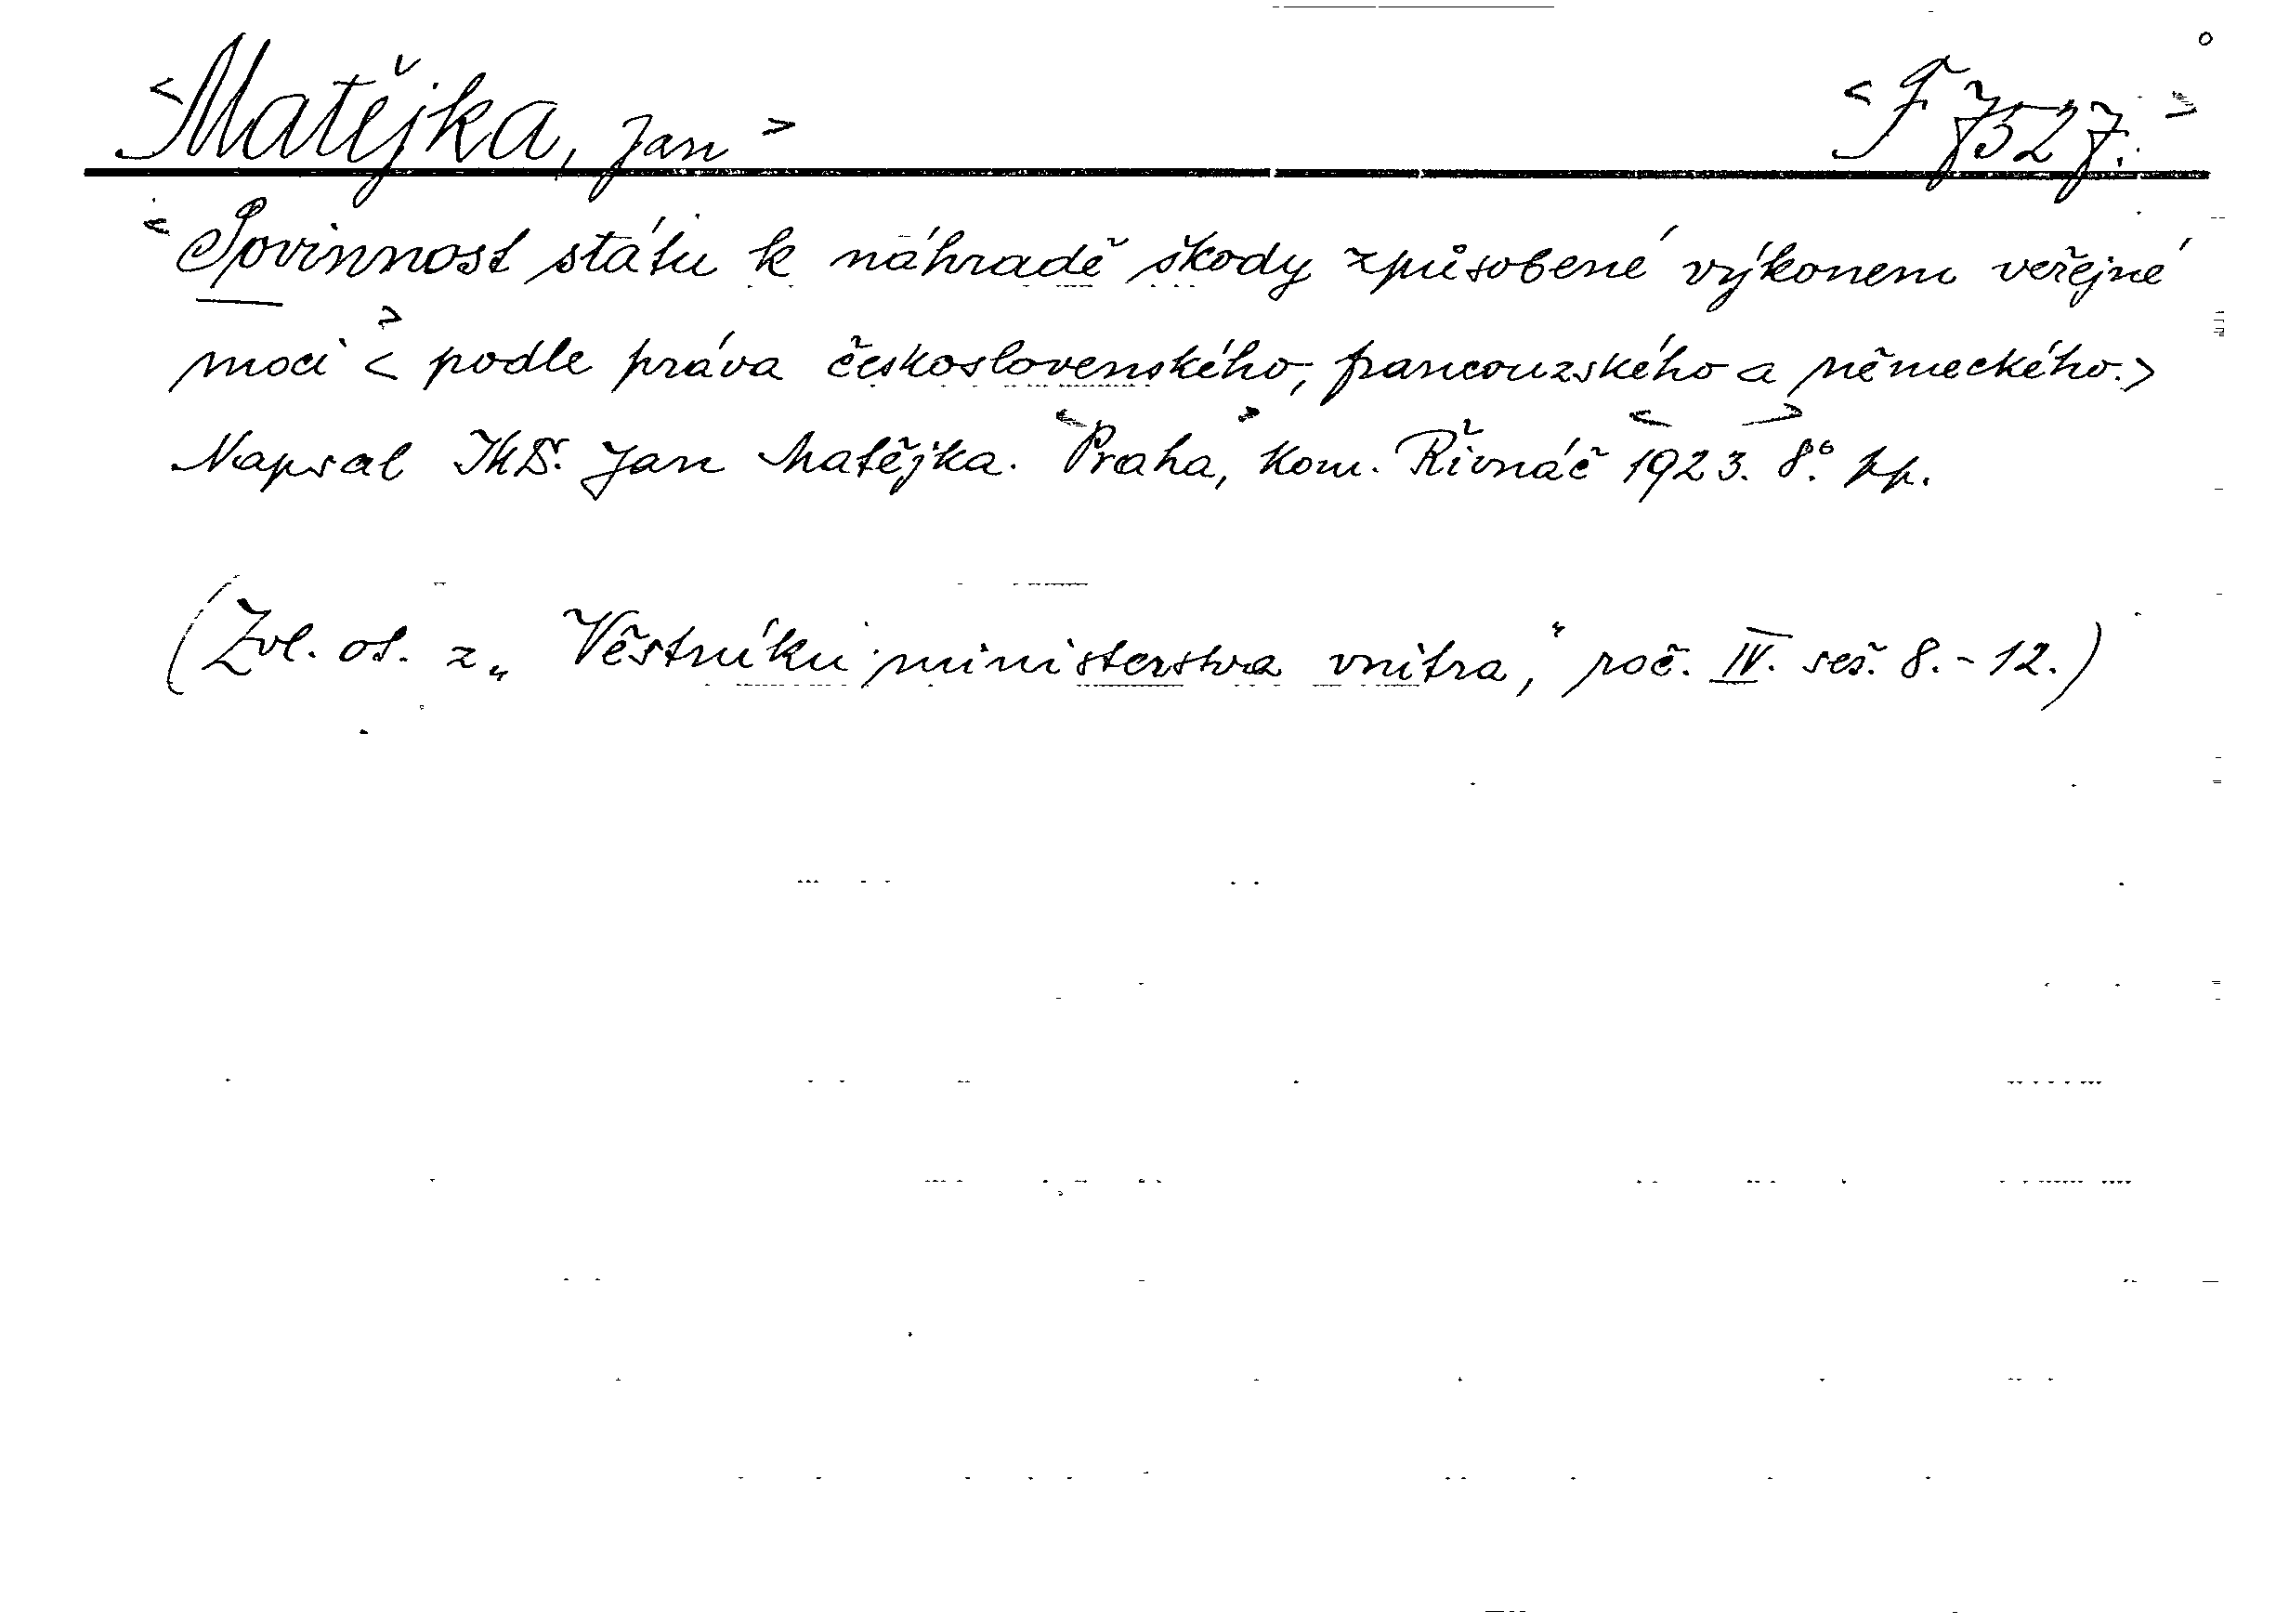 <Matějka, Jan> <F 7527.>
<Povinnost státu k náhradě škody způsobené výkonem veřejné
moci> <podle práva československého, francouzského a německého.>
Napsal JUD. Jan Matějka. <Praha,> Kom. Řivnáč <1923.> 8°.
(Zvl. ot. z „Věstníku ministerstva vnitra,“ roč. IV. seš. 8.-12.)